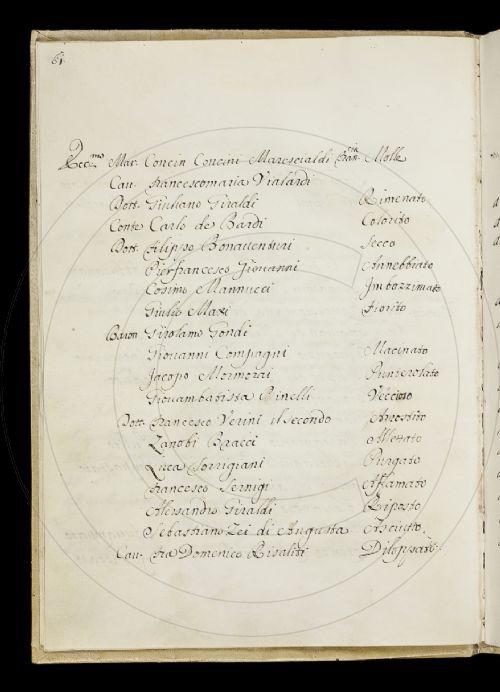 61.
Ecc.mo Mar. Concin Concini Marescialdi Molle
Cau. Francescomaria Vialardi
Dott. Giuliano Giraldi Rimenato
Conte Carlo de Bardi Colorito
Dott. Filippo Bonauenturi Secco
Pierfrancesco Giouanni Annebbiato
Cosimo Mannucci Imbozzimato
Giulio Mazi Fiorito
Baron Girolamo Gondi
Giouanni Compagni Macinato
Jacopo Mormorai Punzerolato
Giouambatista Pinelli Veccioso
Dott. Francesco Verini il secondo Arrostito
Zanobi Bracci
Luca Torrigiani Purgato
Francesco Sernigi Affamato
Alessandro Giraldi Riposto
Sebastiano Zei di Augusta Asciutto
Cau. Fra Domenico Risaliti